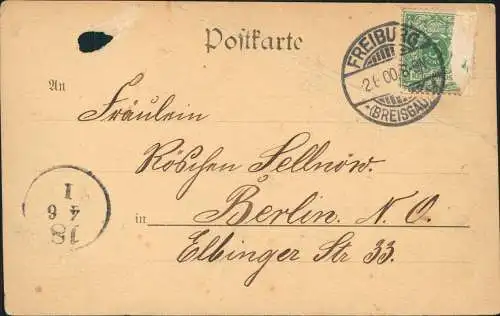 Postkarte
FREIBURG
(BREISGAU)
An
Fräulein
Röschen Sellnow.
in Berlin. N. O.
Elbinger Str 33.